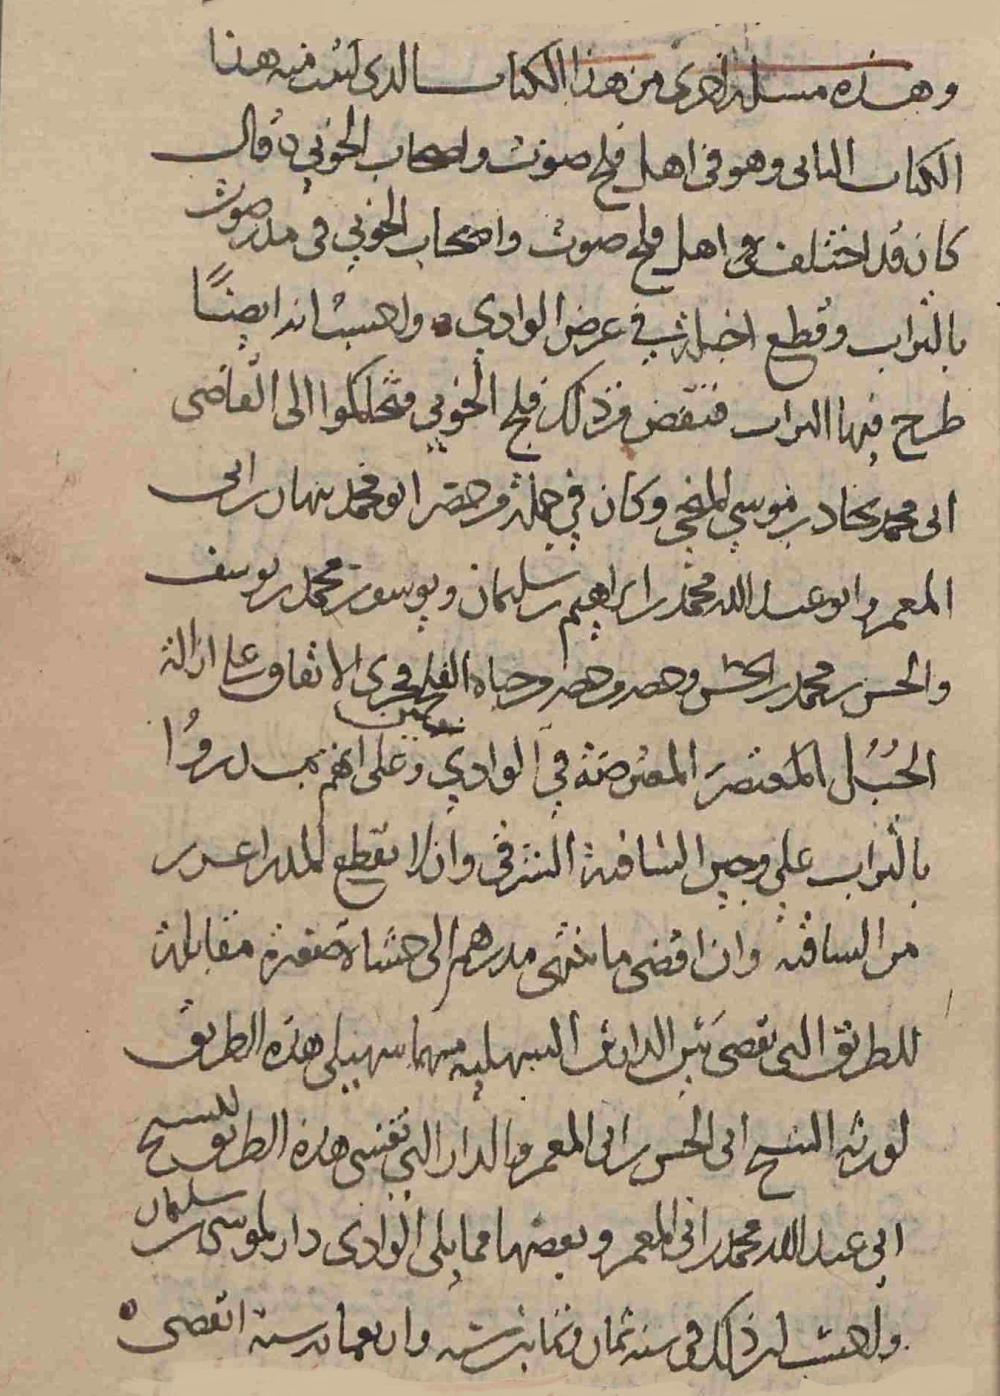 وهذه مسلة اخرى من هذا الكتاب الدى فيه هنا
الكتاب الثانى وهو فى اهل فلج صوت واصحاب الخوبي قال
كان قد اختلف فى اهل فلج صوت واصحاب الخوبي فى مدر صوت
بالتراب وقطع اخبلة فى عرض الوادي واحسب انه ايضًا
طرح فيها التراب فنقض من ذلك فلج الخوبي فتحاكموا الى القاضى
ابى محمد نجاد بن موسى المنحي وكان في جملة من حضر ابو محمد نبهان بن ابى
المعمر وابو عبد الله محمد بن ابراهيم بن سليمان ويوسف بن محمد بن يوسف
والحسن بن محمد بن الحسن وحضر وحضر وجباه الفلجين فجرى الاتفاق على ازالة
الحُبُل المعترضة في الوادي وعلى انهم يمدروُا
بالتراب على وجين الساقية الشرقى وان لا تقطع المدرا
من الساقية وان اقصى ما ينتهى مدرهم الى حشاة صغيرة مقابلة
للطريق التى تفضى بين الدارين السهيلية منهما سهيلي هذه الطريق
لورثة الشيخ ابى الحسن بن ابى المعمر والدار التى هذه الطريق للشيخ
ابي عبد الله محمد بن ابى المعمر وبعضها مما يلى الوادى دار لموسى بن سليمان
واحسب ان ذلك فى سنة ثمان وثمانين سنة واربعمائة سنة انقضى